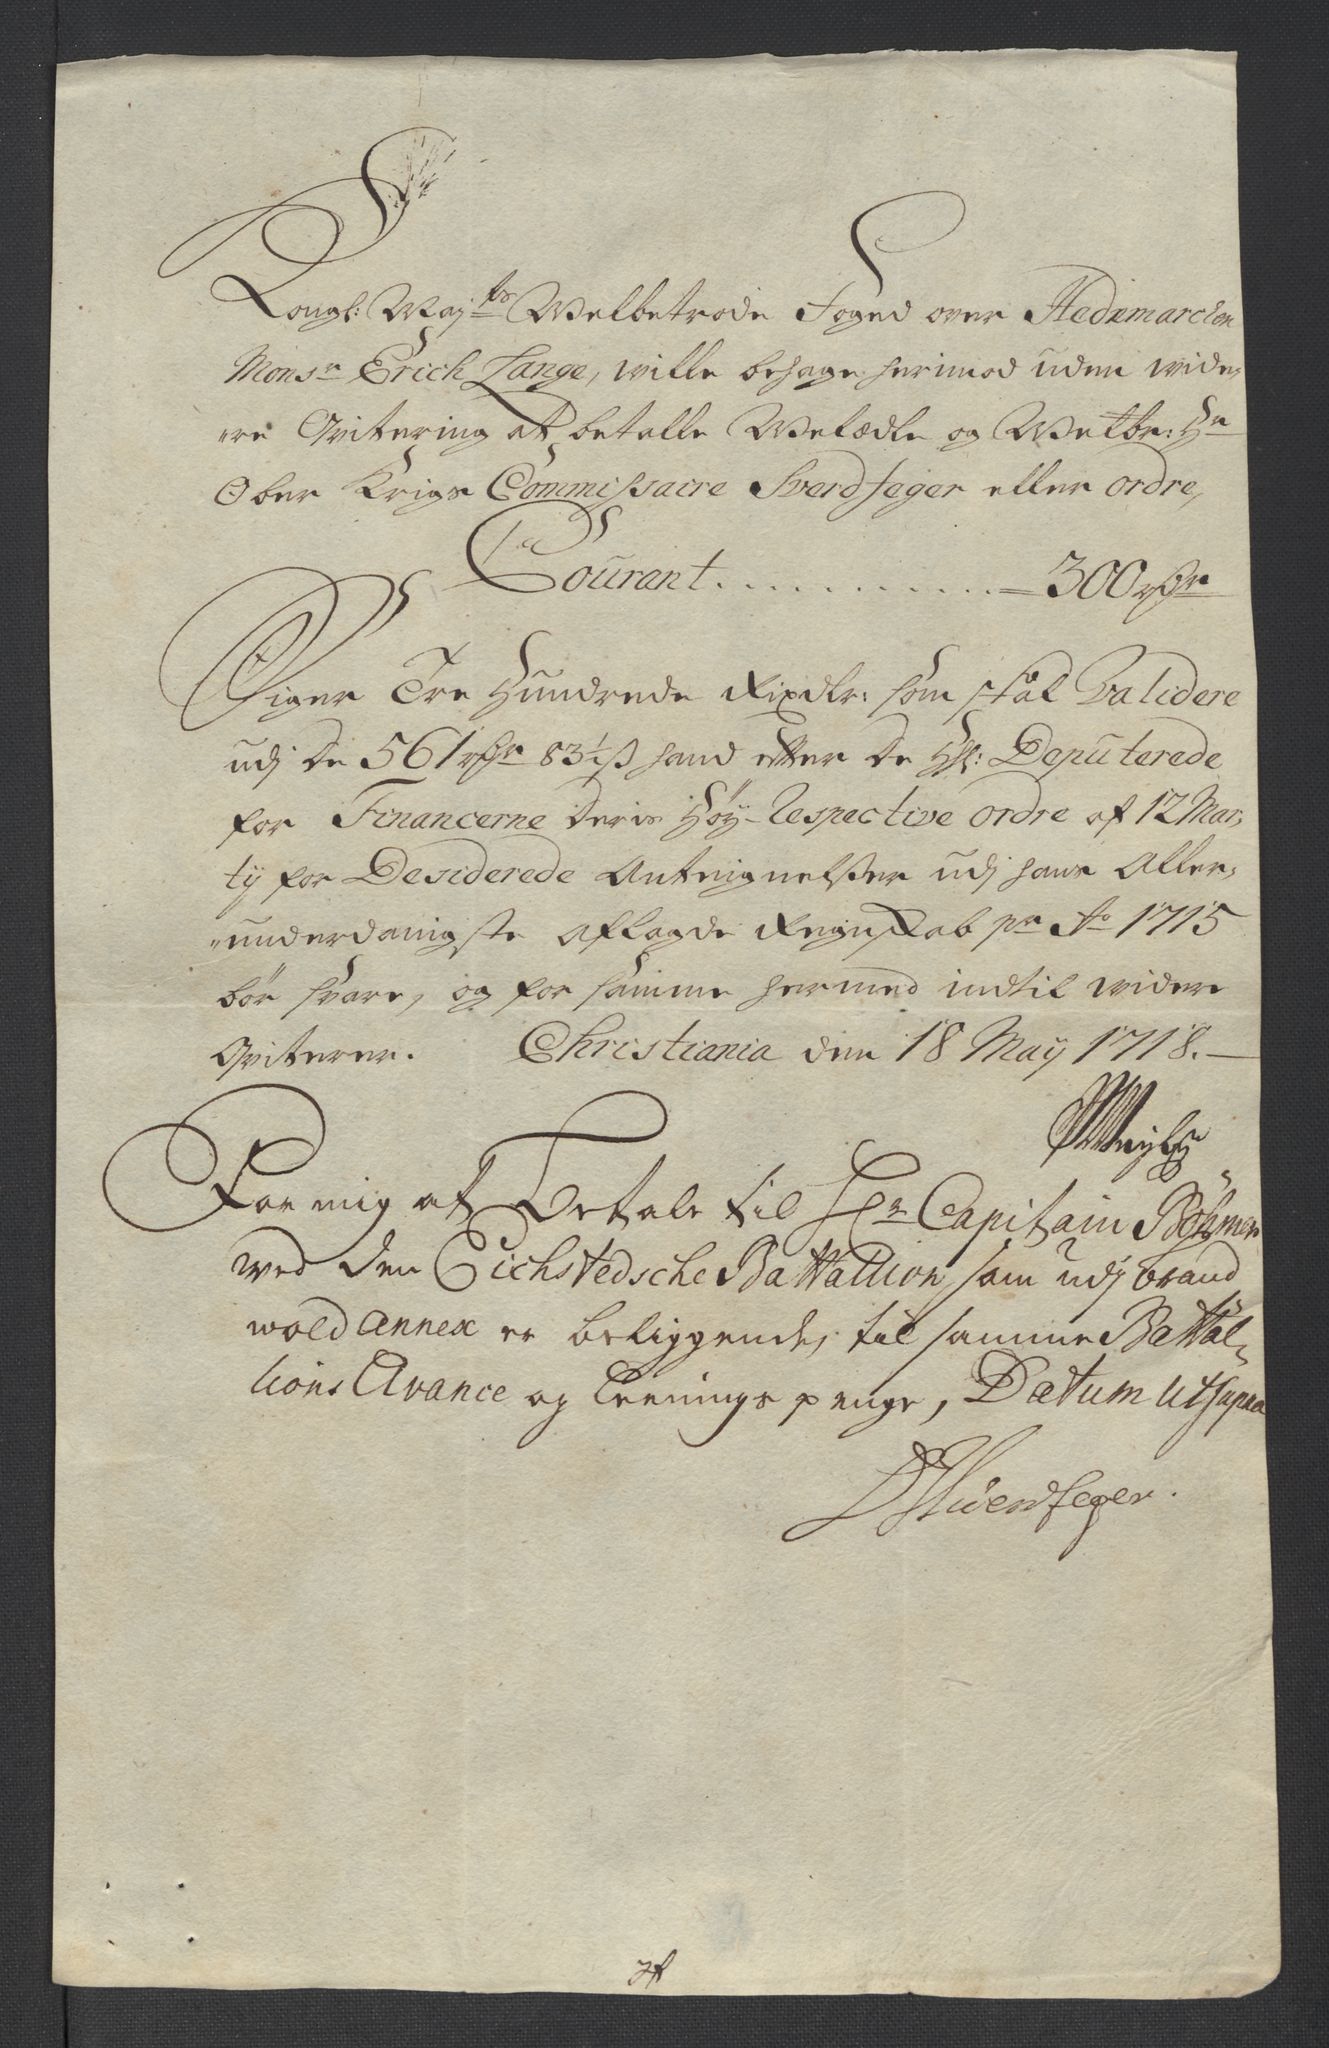 Kongl: Maj:ts Welbetrode Foged over Hedemarchen
Monsr Erich Lange, wille behage herimod uden wide-
re Qvitering at betalle Welædle og Welbr: Hr
Ober Krigs Commissaire Sverdfeger eller ordre,
Courant . . . . . . . . . . . . = 300 rdr
Siger Tre Hundrede Rixdlr: som skal Validere
udj de 561 rdr 83½ s hand efter de HH: Deputerede
for Financerne deris Høy-Respective ordre af 12 Mar-
tij for Desiderede Antegnelser udj hans Aller-
underdanigste aflagde Regnskab pr Ao 1715
bør svare, og for samme hermed indtil widere
Qviterer. Christiania den 18 Maij 1718.
For mig at Betale til Hr Capitain Böhmen
wed den Eichstedsche Battallion, som udj brand
wold annex er beliggende, til samme Battal-
lions Avance og Leenings penge, Datum ut supra
Suerdfeger.